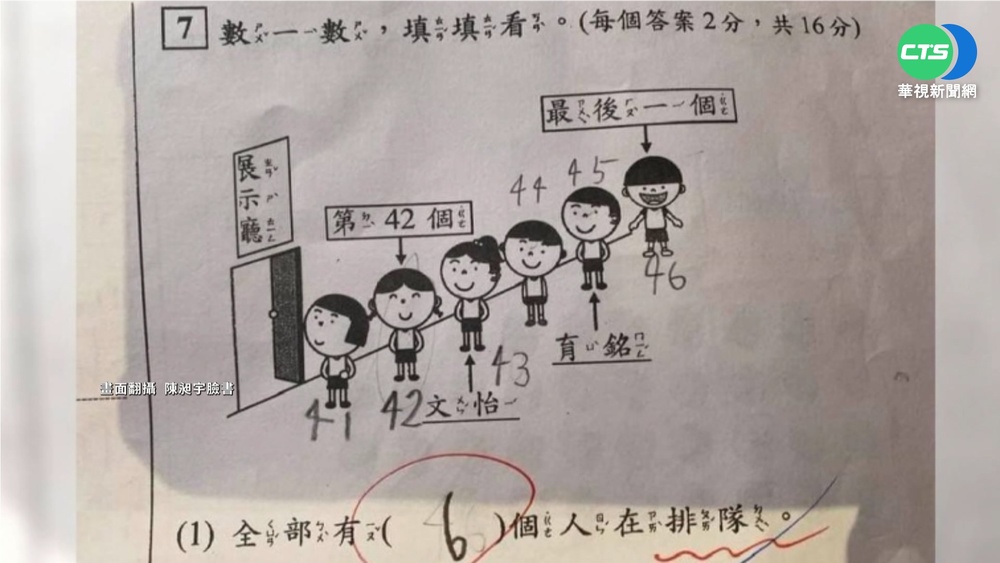 CTS
華視新聞網
7 數一數，填填看。(每個答案2分，共16分)
最後一個
展示廳
第42個
44 45
46
育銘
43
41 42 文怡
畫面翻攝 陳昶宇臉書
(1) 全部有( 6 )個人在排隊。